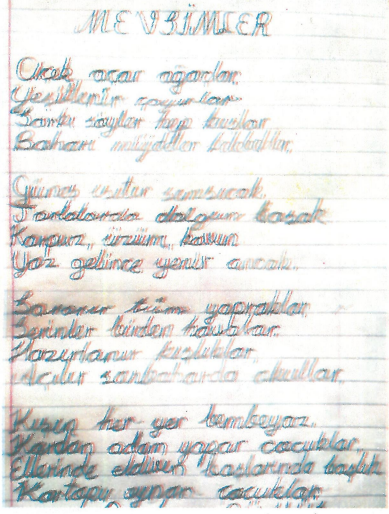 MEVSİMLER
Çiçek açar ağaçlar
Yeşillenir çayırlar
Şarkı söyler hep kuşlar
Baharı müjdeler kelebekler.
Güneş ısıtır sımsıcak.
Tarlalarda dolgun başak
Karpuz, üzüm, kavun
Yaz gelince yenir ancak.
Sararır tüm yapraklar
Serinler birden havalar.
Hazırlanır kışlıklar.
Açılır sonbaharda okullar.
Kışın her yer bembeyaz.
Kardan adam yapar çocuklar.
Ellerinde eldiven başlarında başlık
Kartopu oynar çocuklar.